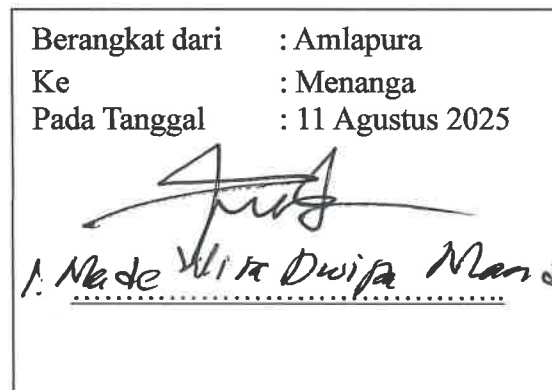 Berangkat dari : Amlapura
Ke : Menanga
Pada Tanggal : 11 Agustus 2025
I. Made Wira Dwipa